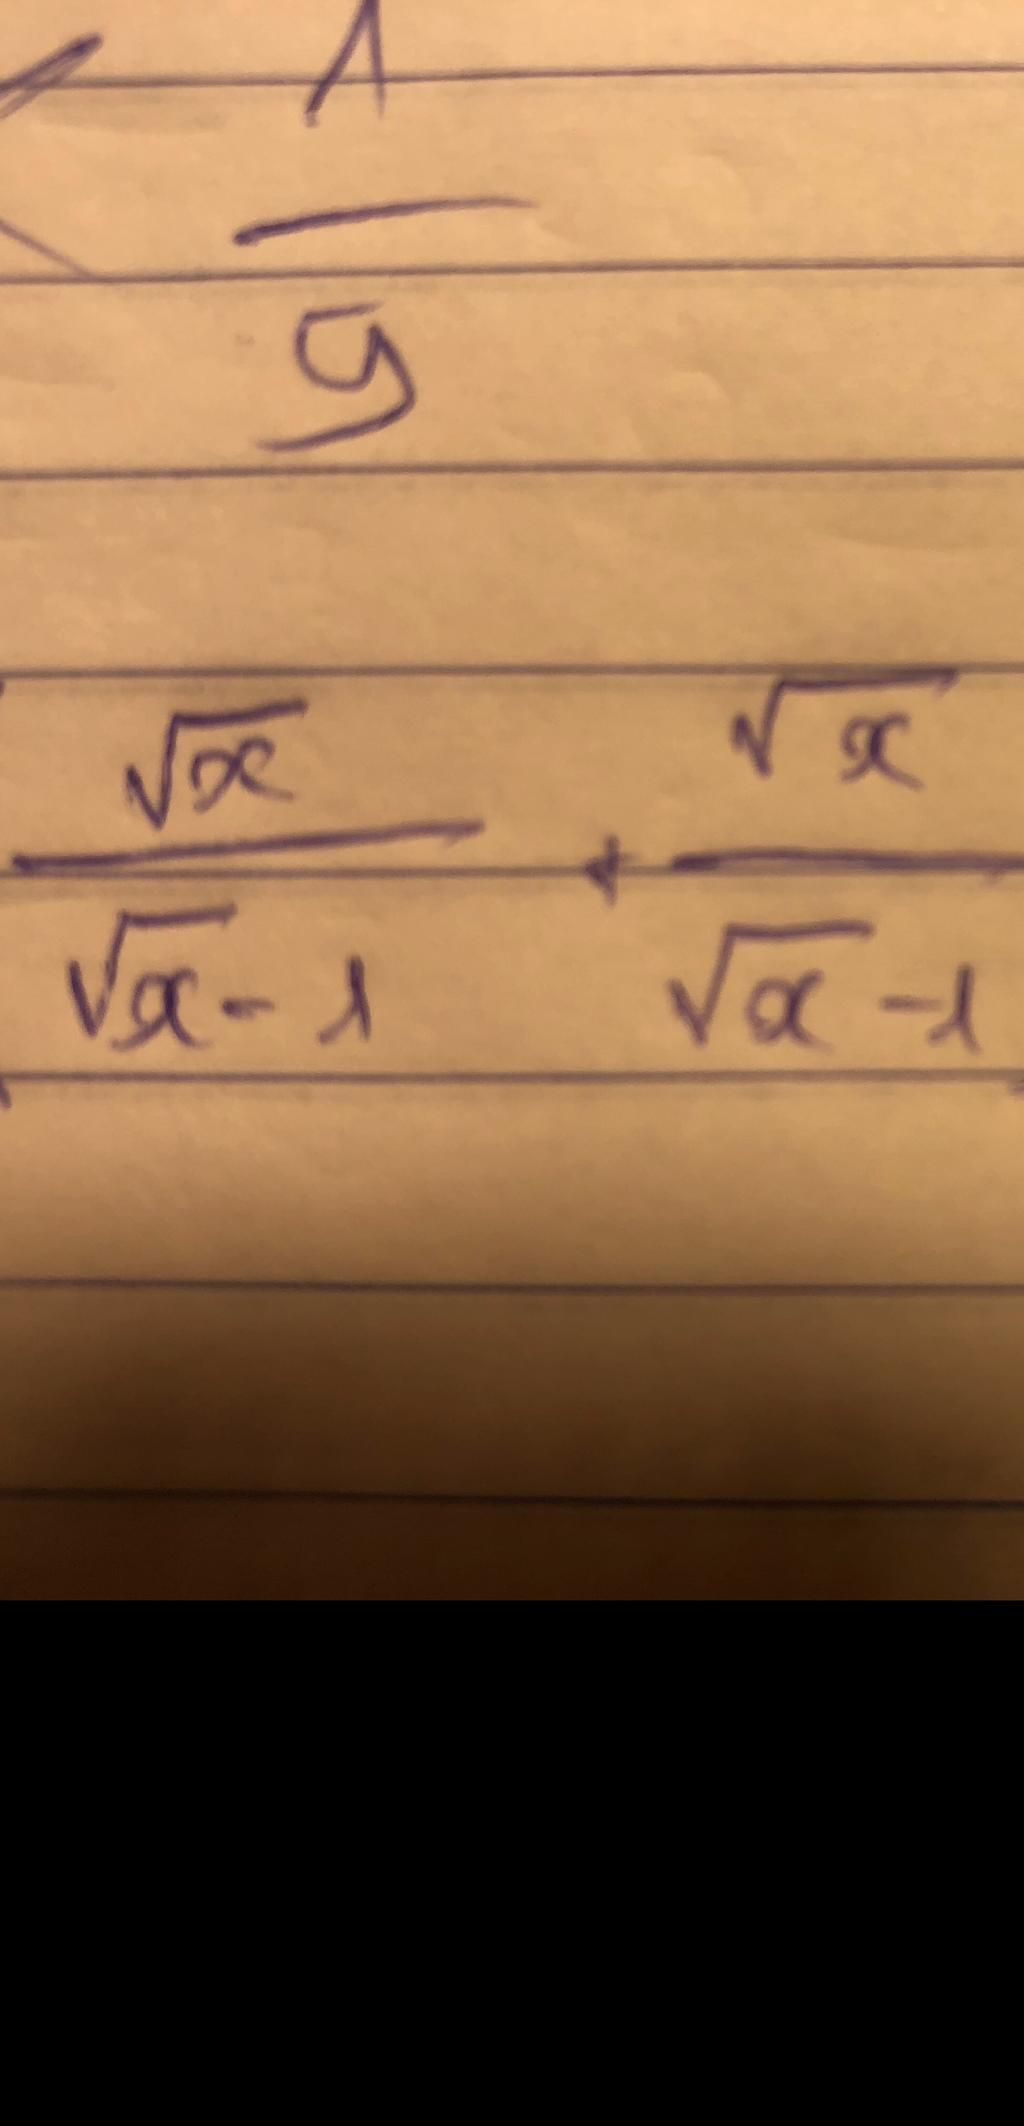 < 1/9
√x/(√x - 1) + √x/(√x - 1)